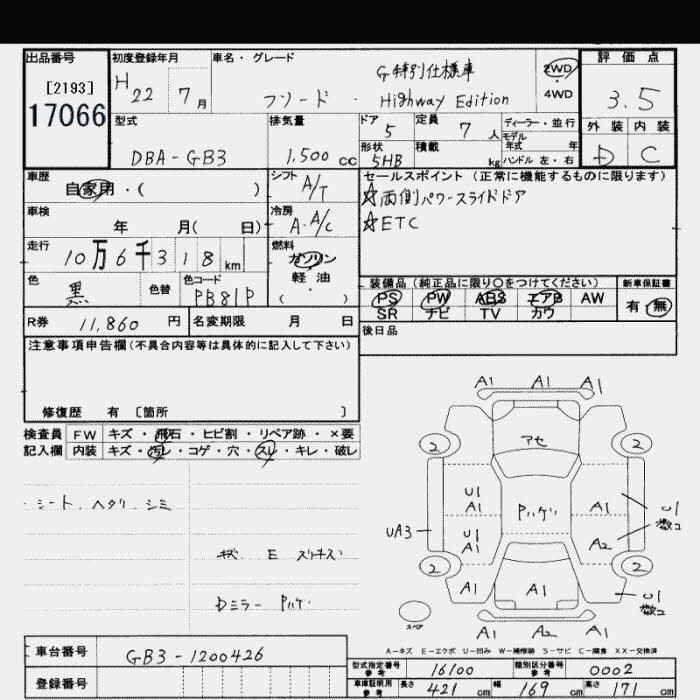 出品番号
[2193]
17066
初度登録年月
H 22 7月
車名・グレード
G特別仕様車
フリード・Highway Edition
2WD
4WD
評価点
3.5
外装 内装
D C
型式
DBA-GB3
排気量
1,500cc
ドア
5
定員
7人
形状
5HB
積載
kg
ディーラー・並行
モデル年式 年
ハンドル 左・右
車歴
自家用・( )
シフト
A/T
車検
年 月( 日)
冷房
A.A/C
走行
10万6千318km
燃料
ガソリン
軽油
( )
色
黒
色替
色コード
PB81P
R券 11,860円
名変期限 月 日
セールスポイント(正常に機能するものに限ります)
☆両側パワースライドドア
☆ETC
装備品(純正品に限り○をつけてください)
PS PW ABS エアB AW
SR ナビ TV カワ
新車保証書
有・無
後日品
注意事項申告欄(不具合内容等は具体的に記入して下さい)
修復歴 有 [箇所 ]
検査員 FW キズ・飛石・ヒビ割・リペア跡・×要
記入欄 内装 キズ・汚レ・コゲ・穴・スレ・キレ・破レ
シート ヘタリ シミ
キズ E スリキズ
Dミラー Pハゲ
A1 A1 A1
2 2
アセ
U1 A1
Pハゲ
A1
U1 数コ
UA3
U1 A1
A2
2 2
A1 A1
U1 数コ
スペア
A1 A2 A1
A-キズ E-エクボ U-凹み W-補修跡 S-サビ C-腐食 XX-交換済
車台番号 GB3-1200426
登録番号
型式指定番号 参考 16100
類別区分番号 参考 0002
車庫証明用 参考 長さ 421cm 幅 169cm 高さ 171cm